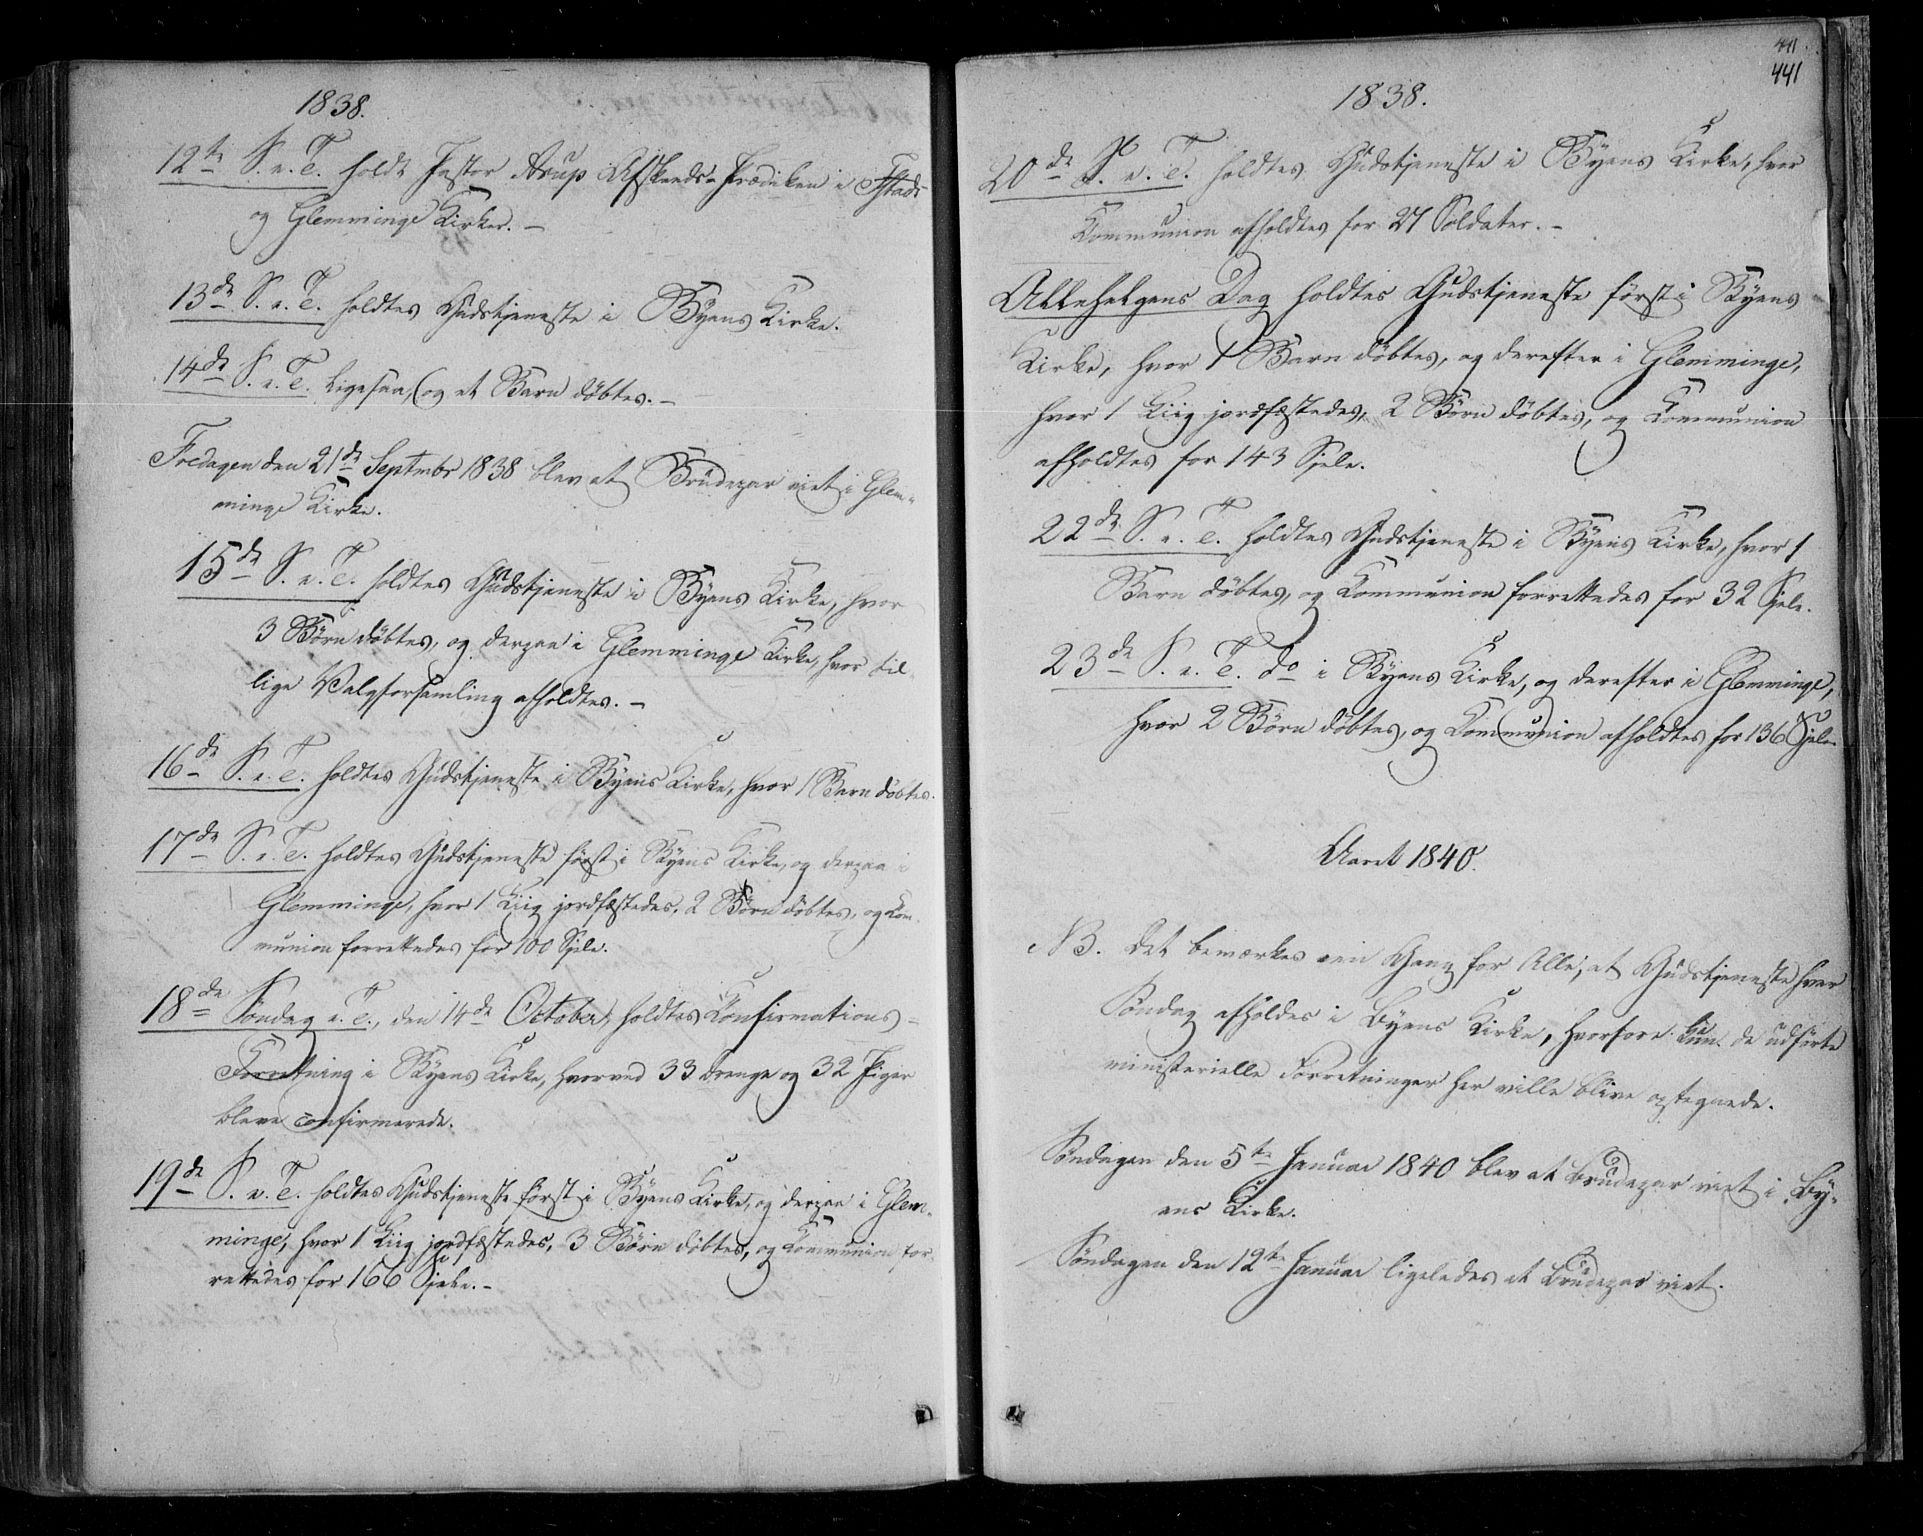 1838.
12te S. e. T. holdt Pastor Arup Afskeds-Prædiken i Fstads
og Glemminge Kirker. –
13de S. e. T. holdtes Gudstjeneste i Byens Kirke.
14de S. e. T. ligesaa, og et Barn døbtes. –
Fredagen den 21de Septmbr 1838 blev et Brudepar viet i Glem-
minge Kirke.
15de S. e. T. holdtes Gudstjeneste i Byens Kirke, hvor
3 Børn døbtes, og derpaa i Glemminge Kirke, hvor til-
lige Valgforsamling afholdtes. –
16de S. e. T. holdtes Gudstjeneste i Byens Kirke, hvor 1 Barn døbtes.
17de S. e. T. holdtes Gudstjeneste først i Byens Kirke, og derpaa i
Glemminge, hvor 1 Liig jordfæstedes, 2 Børn døbtes, og Com-
munion forrettedes for 100 Sjele.
18de Søndag e. T., den 14de October, holdtes Confirmations-
Forretning i Byens Kirke, hvorved 33 Drenge og 32 Piger
bleve confirmerede.
19de S. e. T. holdtes Gudstjeneste først i Byens Kirke, og derpaa i Glem-
minge, hvor 1 Liig jordfæstedes, 3 Børn døbtes, og Communion for-
rettedes for 166 Sjele. –
441
441
1838.
20de S. e. T. holdtes Gudstjeneste i Byens Kirke, hvor
Communion afholdtes for 27 Soldater. –
Allehelgens Dag holdtes Gudstjeneste først i Byens
Kirke, hvor 1 Barn døbtes, og derefter i Glemminge,
hvor 1 Liig jordfæstedes, 2 Børn døbtes, og Communion
afholdtes for 143 Sjele.
22de S. e. T. holdtes Gudstjeneste i Byens Kirke, hvor 1
Barn døbtes, og Communion forrettedes for 32 Sjele.
23de S. e. T. do i Byens Kirke, og derefter i Glemminge,
hvor 2 Børn døbtes, og Communion afholdtes for 136 Sjele
Aaret 1840.
NB. Det bemærkes een Gang for Alle, at Gudstjeneste hver
Søndag afholdes i Byens Kirke, hvorfore kun de udførte
ministerielle Forretninger her ville blive optegnede.
Søndagen den 5te Januar 1840 blev et Brudepar viet i By-
ens Kirke.
Søndagen den 12te Januar ligeledes et Brudepar viet.